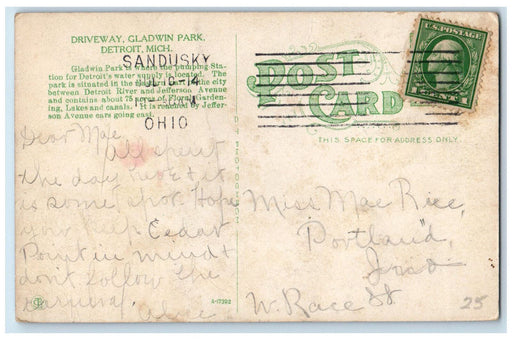 DRIVEWAY, GLADWIN PARK,
DETROIT, MICH.
Gladwin Park is where the pumping Sta-
tion for Detroit's water supply is located. The
park is situated in the eastern part of the city
between Detroit River and Jefferson Avenue
and contains about 75 acres of Floral Garden-
ing, Lakes and canals. It is reached by Jeffer-
son Avenue cars going east.
SANDUSKY
JUL 14
OHIO
POST
CARD
THIS SPACE FOR ADDRESS ONLY
U.S. POSTAGE
1 CENT
Dear Mae,
All spent
the day here & it
is some spot. Hope
you keep Cedar
Point in mind &
don't follow the
Alice
Miss Mae Rice,
Portland,
Ind
W. Race St
25
A-17392